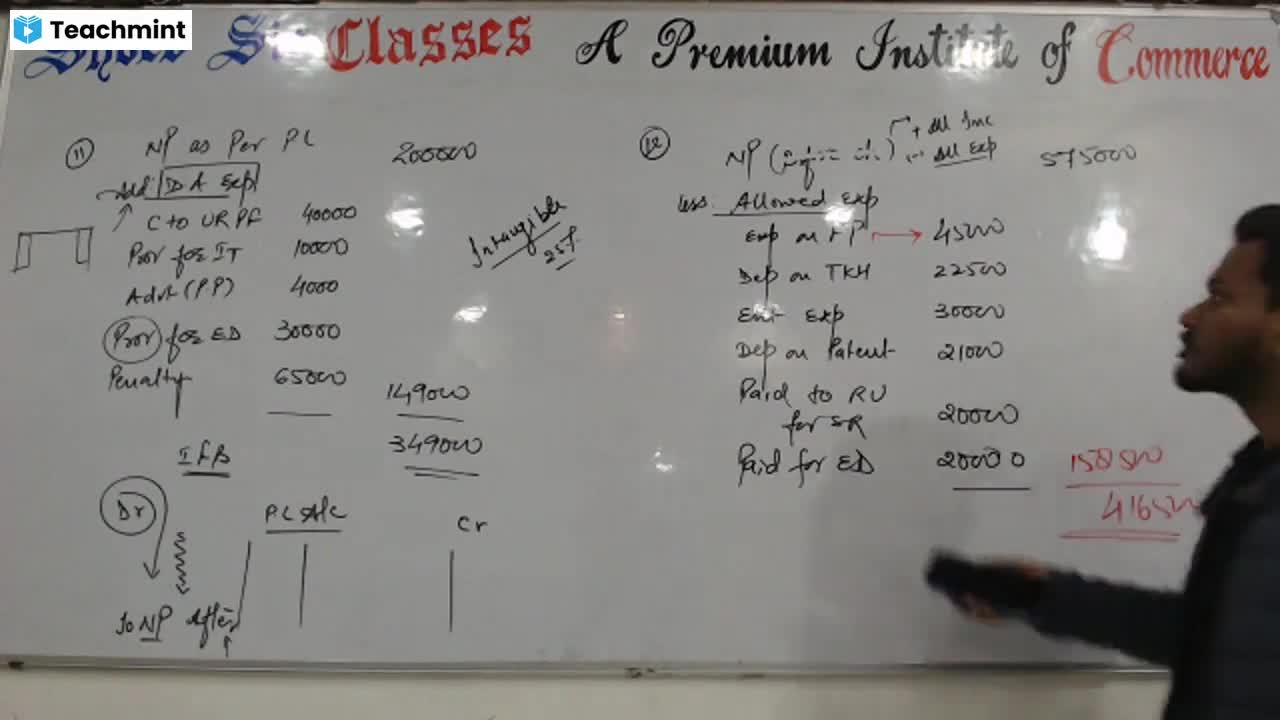 Teachmint
Classes A Premium Institute of Commerce
11 NP as Per PL 200000
Add DA Exp
C to URPF 40000
Prov for IT 10000
Advt (PP) 4000
Prov for ED 30000
Penalty 65000 149000
349000
IFB
Dr PL A/c Cr
To NP After
Intangible
25%
12 NP 575000
+ All Inc
All Exp
Less: Allowed Exp
Exp on FP 45000
Dep on TKH 22500
Ent Exp 30000
Dep on Patent 21000
Paid to RU
for SR 20000
Paid for ED 20000 158500
416500